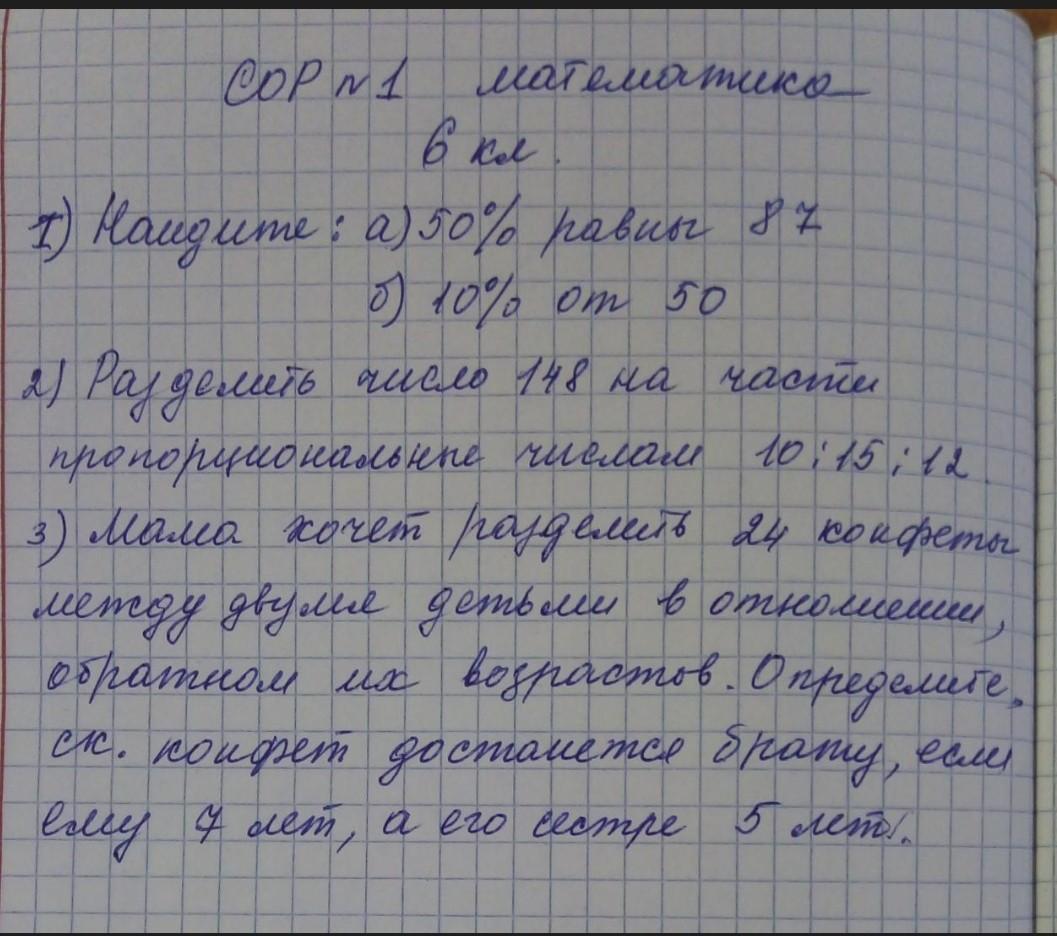 СОР №1 математика
6 кл.
1) Найдите: а) 50% равны 87
б) 10% от 50
2) Разделить число 148 на части
пропорциональные числам 10:15:12.
3) Мама хочет разделить 24 конфеты
между двумя детьми в отношении,
обратном их возрастов. Определите,
ск. конфет достанется брату, если
ему 7 лет, а его сестре 5 лет.